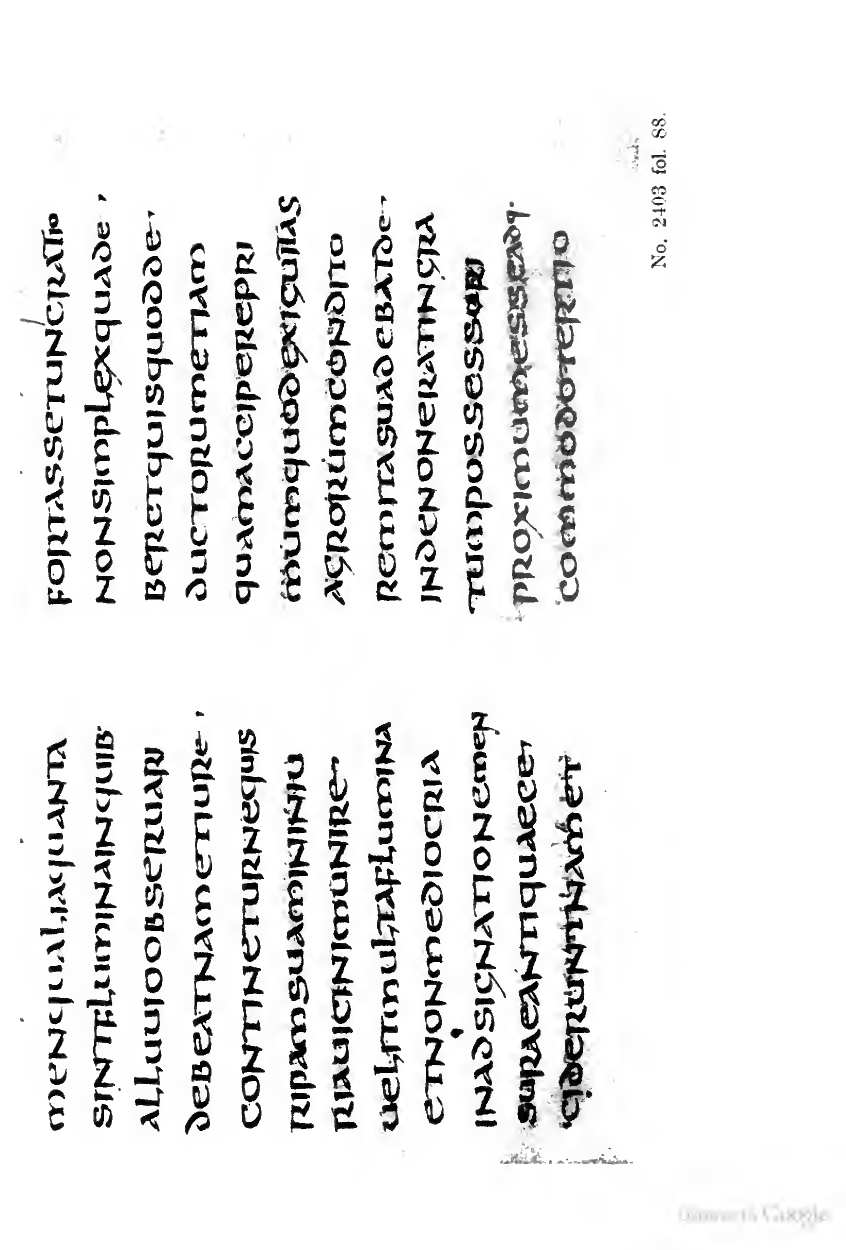 MENQUALIAQUANTA
SINTFLUMINAINQUIB·
ALLUUIOOBSERUARI
DEBEATNAMETIURE·
CONTINETURNEQUIS
RIPAMSUAMININIU
RIAUICINIMUNIRE
UELITMULTAFLUMINA
ETNONMEDIOCRIA
INADSIGNATIONEMEN
SUPRAEANTIQUAECE
CIDERUNTNAMET
FORTASSETUNCRATIO
NONSIMPLEXQUADE·
BERETQUISQUODDE
DUCTORUMETIAM
QUAMACCIPEREPRI
MUMQUODEXIGUITAS
AGRORUMCONDITO
REMITASUADEBATDE
INDENONERATINGRA
TUMPOSSESSORI
PROXIMUMESSEADQ·
COMMODOTERTIO
No. 2403 fol. 88.
Digitized by Google